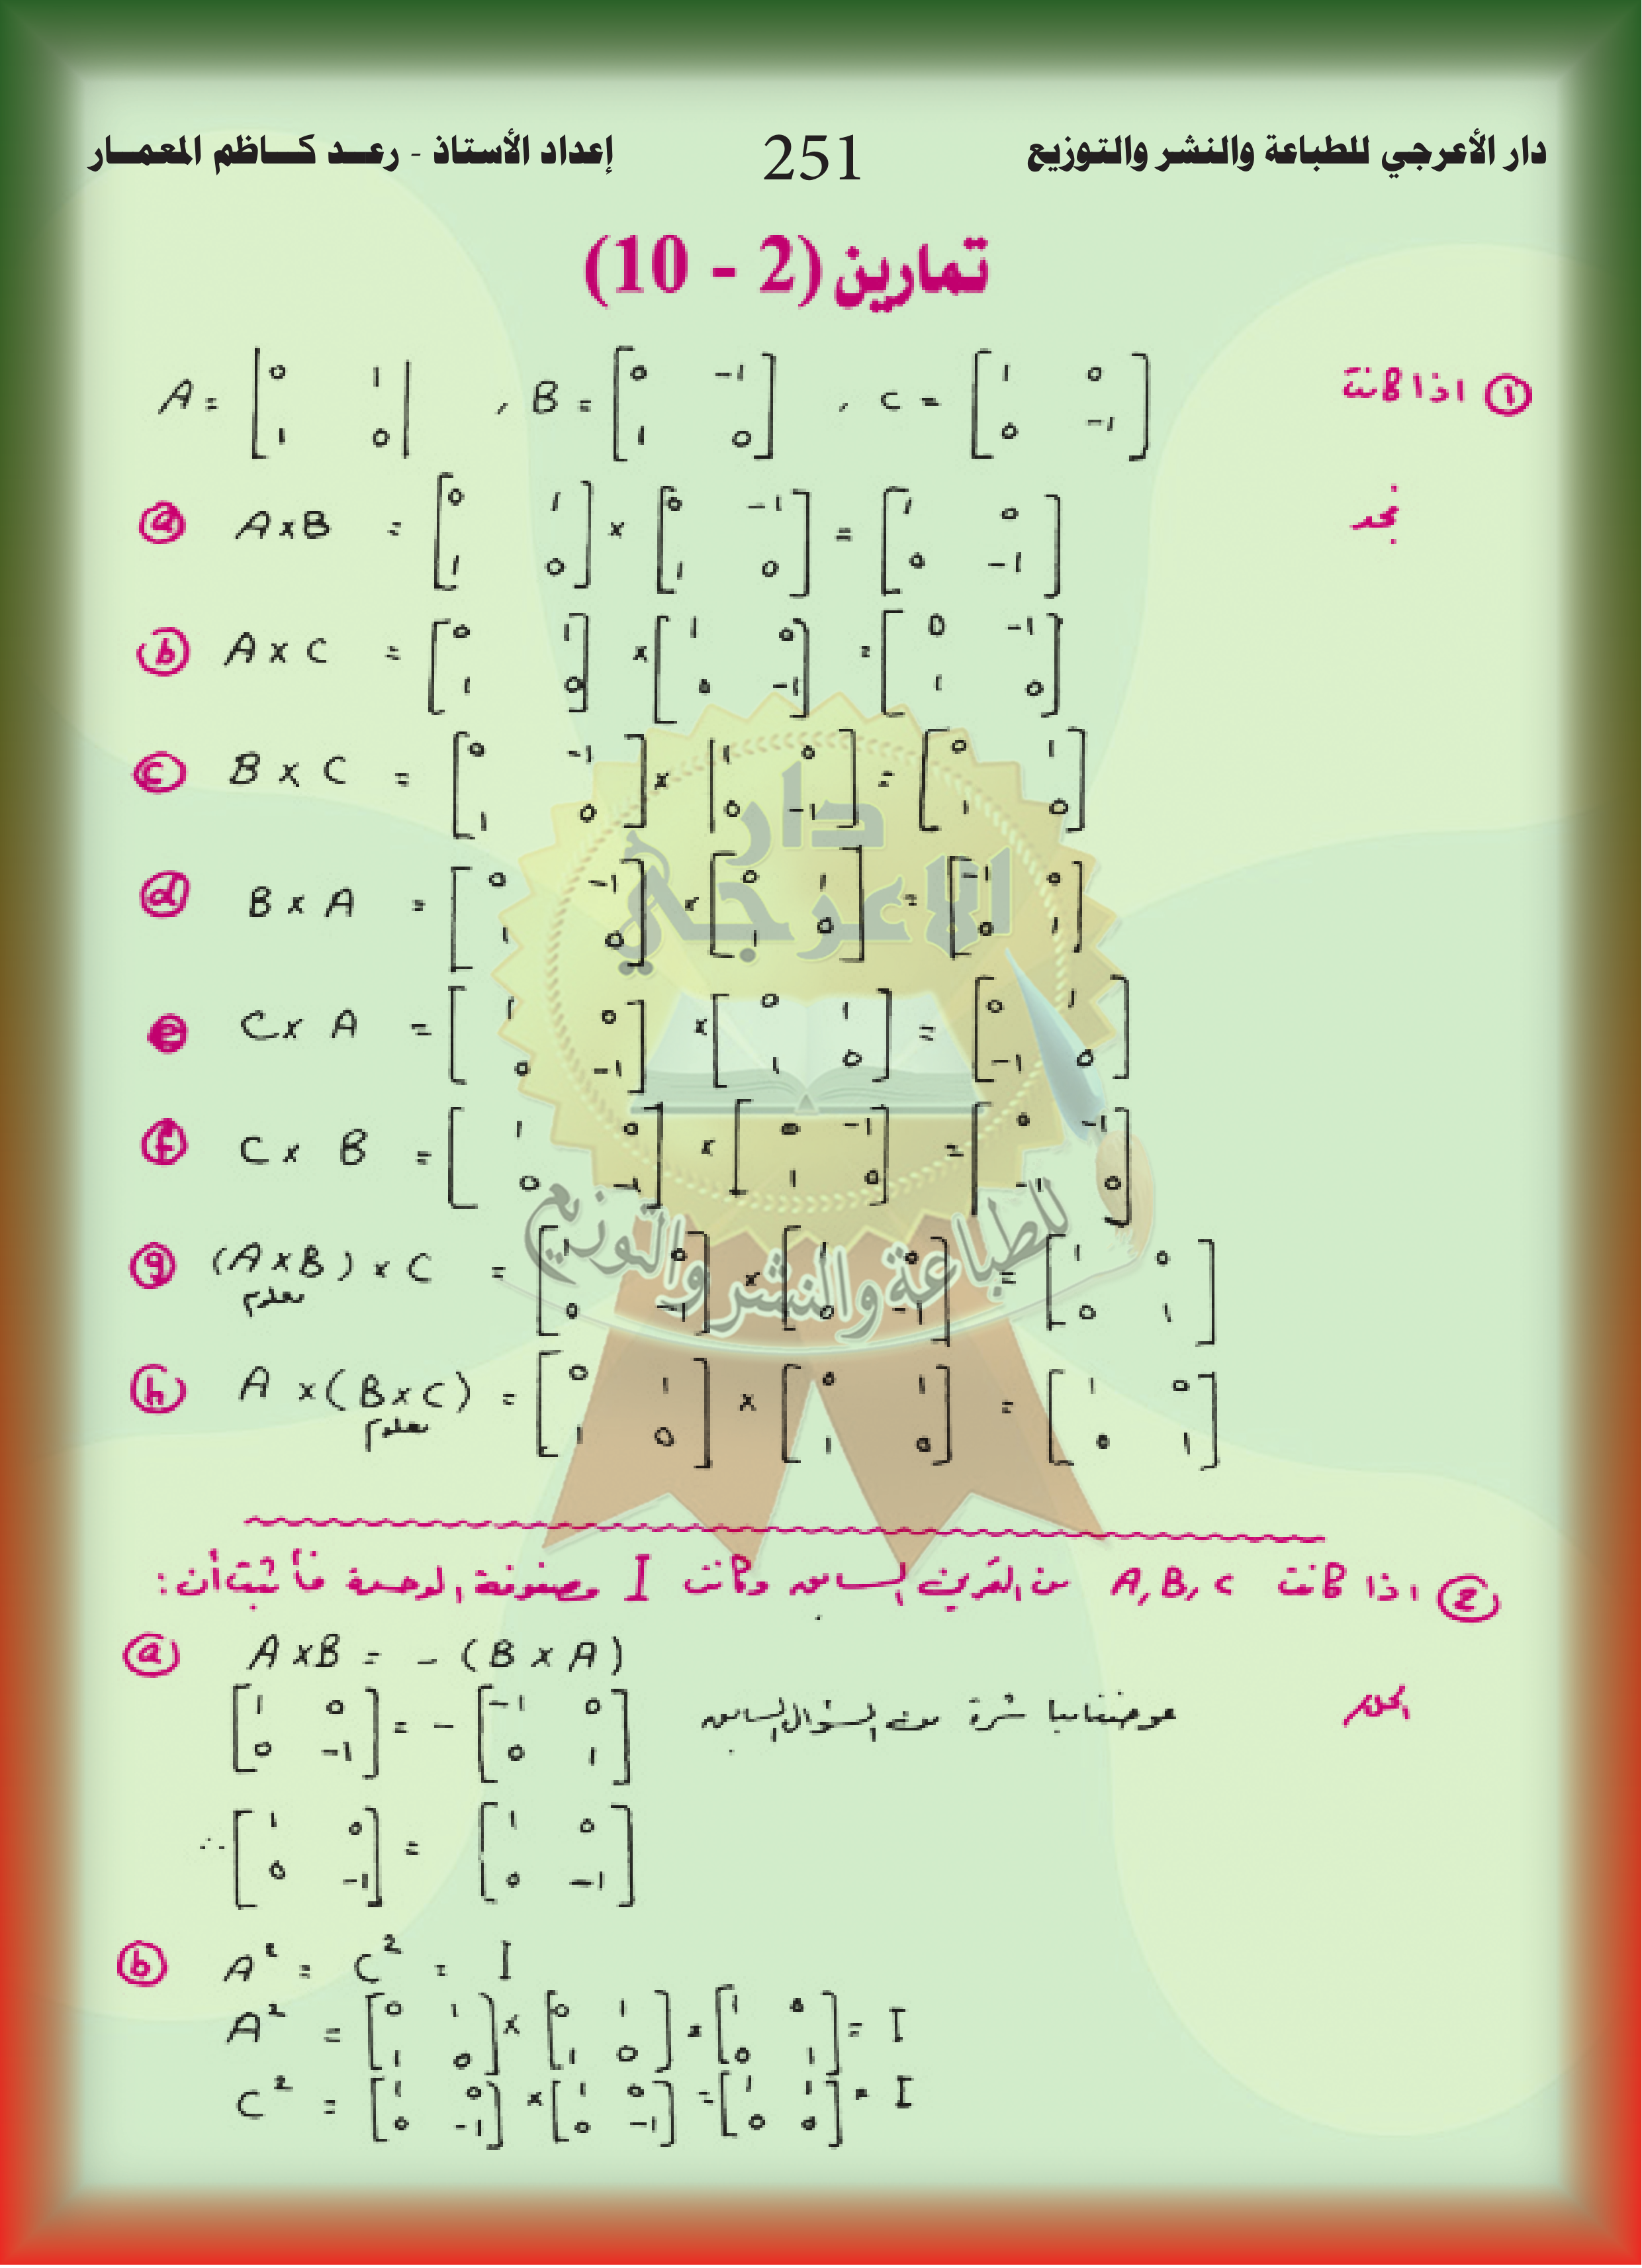 دار الأعرجي للطباعة والنشر والتوزيع 251 إعداد الأستاذ - رعد كاظم المعمار
تمارين (2 - 10)
① اذا كانت A = [0 1; 1 0] , B = [0 -1; 1 0] , C = [1 0; 0 -1]
نجد
ⓐ A×B = [0 1; 1 0] × [0 -1; 1 0] = [1 0; 0 -1]
ⓑ A×C = [0 1; 1 0] × [1 0; 0 -1] = [0 -1; 1 0]
ⓒ B×C = [0 -1; 1 0] × [1 0; 0 -1] = [0 1; 1 0]
ⓓ B×A = [0 -1; 1 0] × [0 1; 1 0] = [-1 0; 0 1]
ⓔ C×A = [1 0; 0 -1] × [0 1; 1 0] = [0 1; -1 0]
ⓕ C×B = [1 0; 0 -1] × [0 -1; 1 0] = [0 -1; -1 0]
ⓖ (A×B)×C = [1 0; 0 -1] × [1 0; 0 -1] = [1 0; 0 1]
معلوم
ⓗ A×(B×C) = [0 1; 1 0] × [0 1; 1 0] = [1 0; 0 1]
معلوم
② اذا كانت A, B, C من التمرين السابق وكانت I مصفوفة الوحدة فأثبت أن:
ⓐ A×B = -(B×A)
الحل
[1 0; 0 -1] = -[-1 0; 0 1] عوضنا مباشرة من السؤال السابق
∴ [1 0; 0 -1] = [1 0; 0 -1]
ⓑ A² = C² = I
A² = [0 1; 1 0] × [0 1; 1 0] = [1 0; 0 1] = I
C² = [1 0; 0 -1] × [1 0; 0 -1] = [1 1; 0 0] = I
دار
الاعرجي
للطباعة والنشر والتوزيع